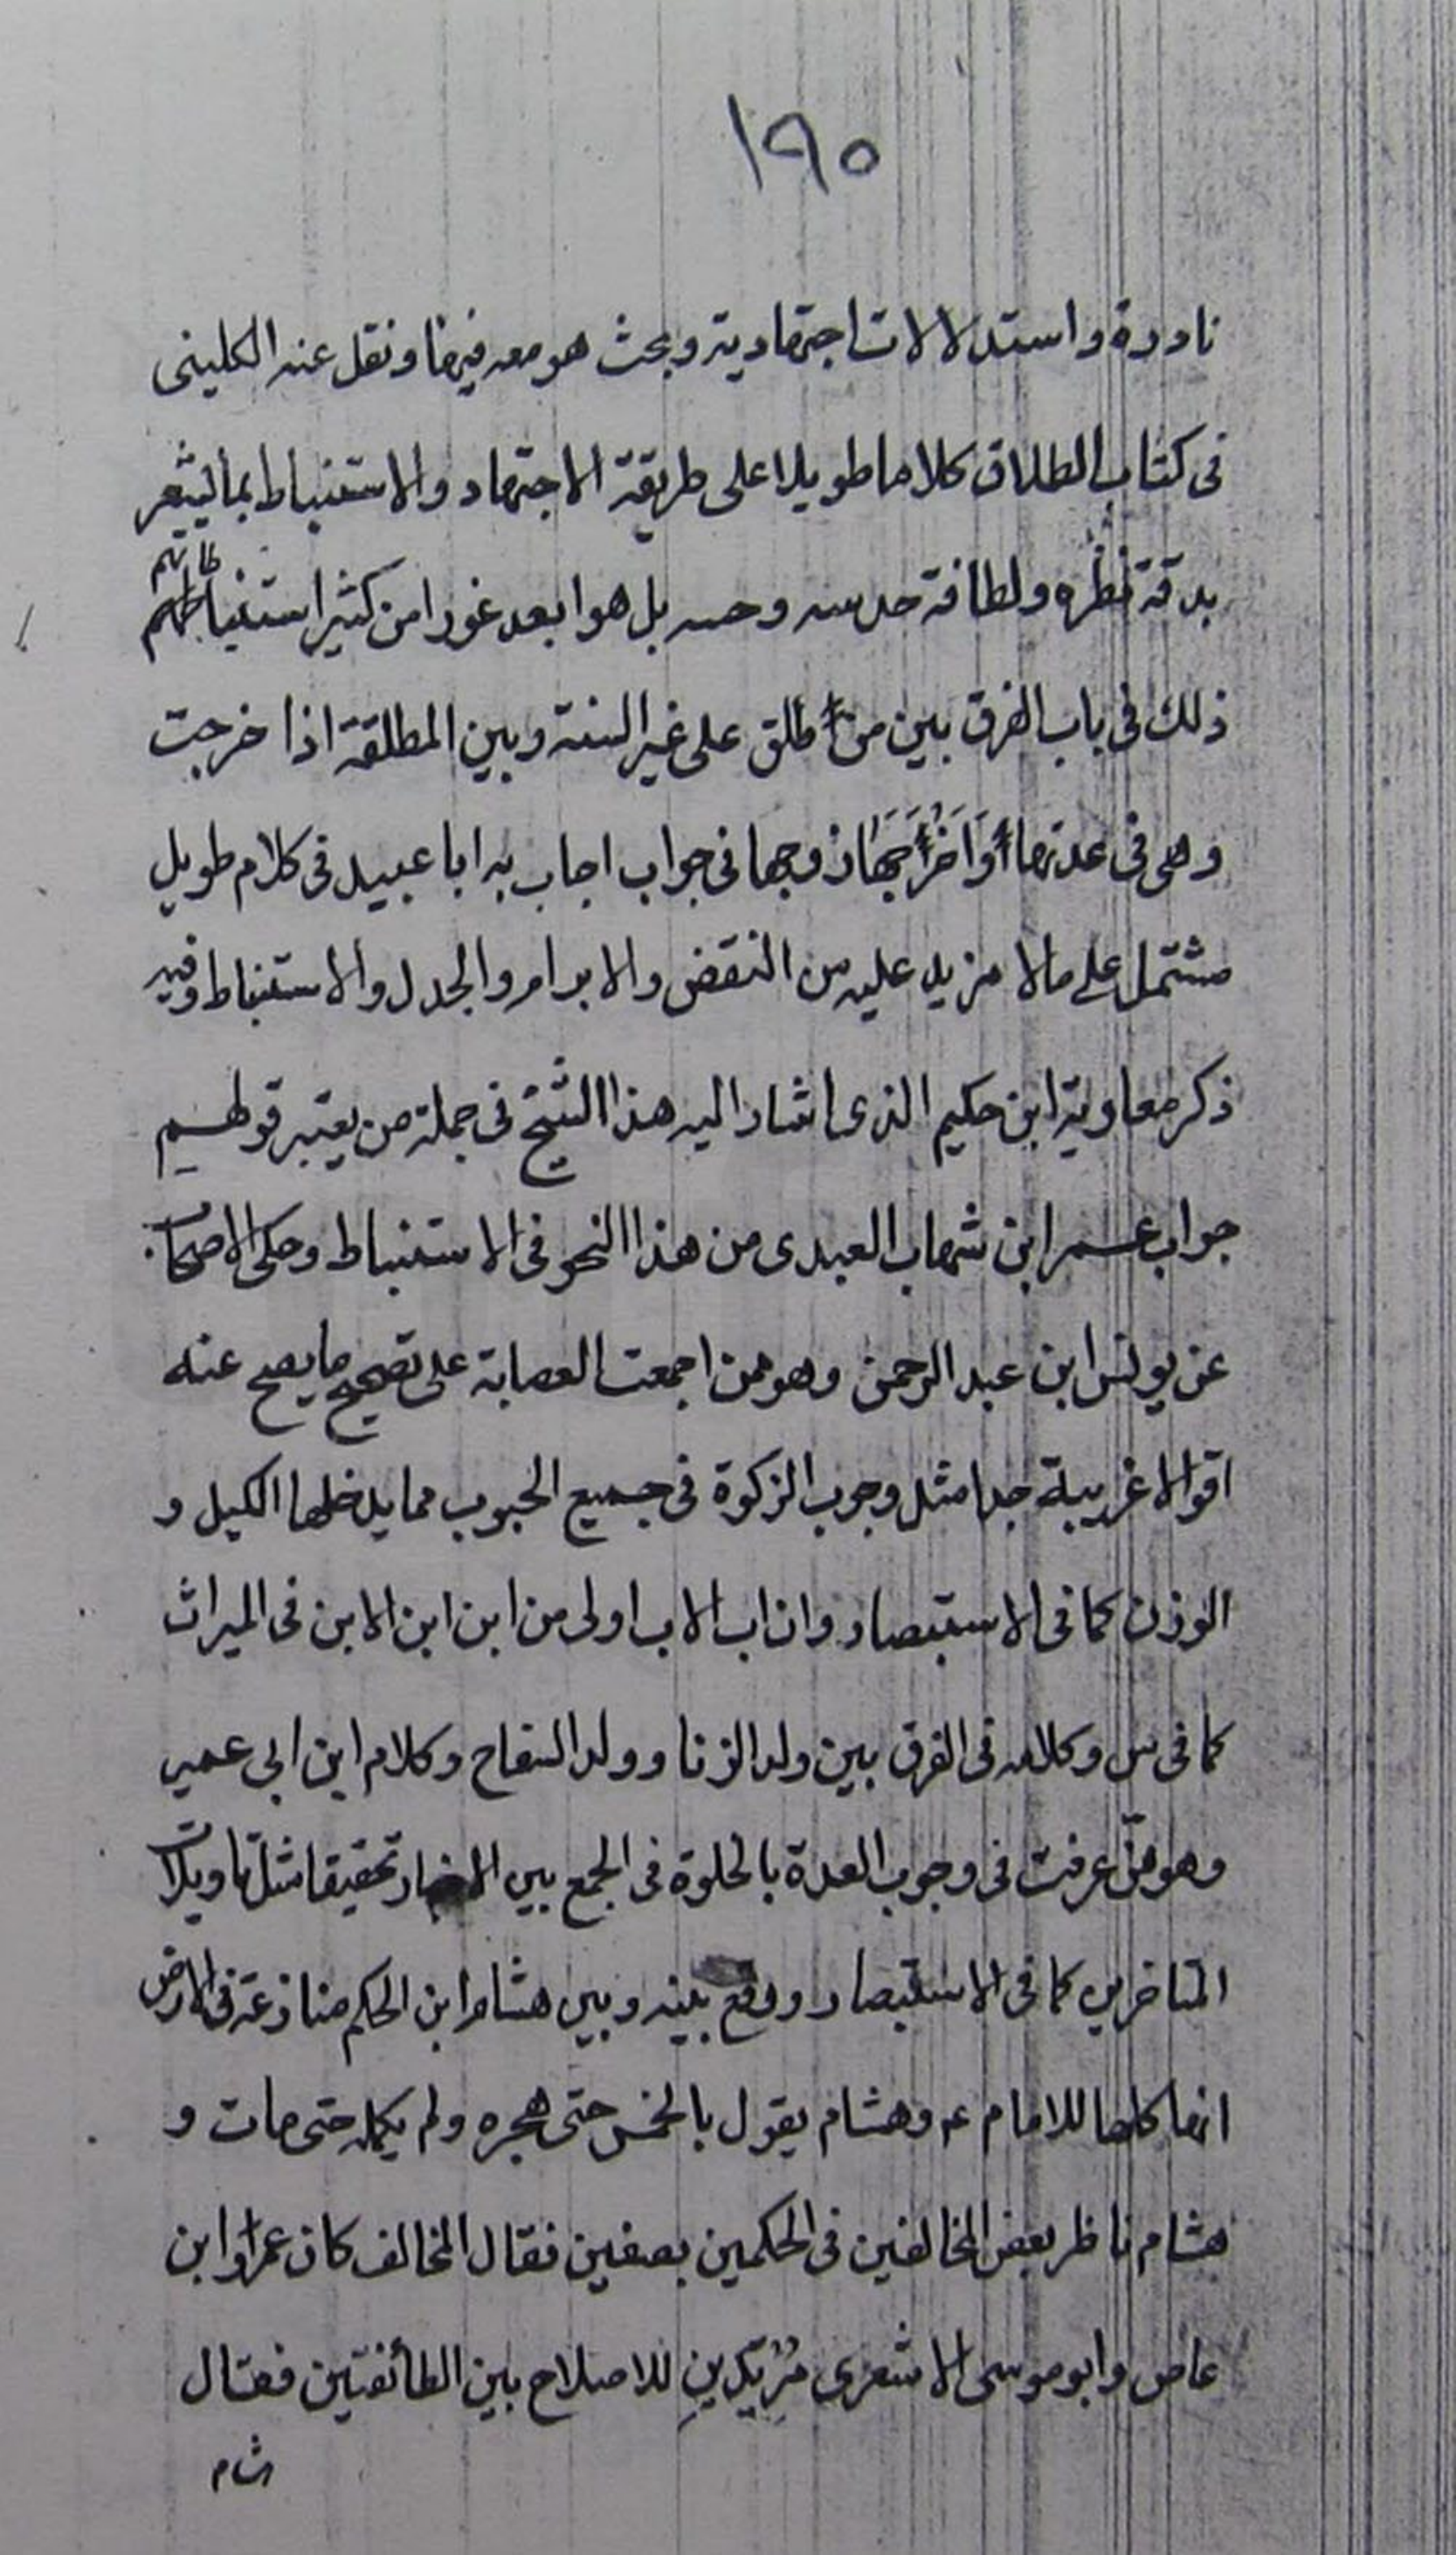 ١٩٥
نادرة واستدلالات اجتهادية وبحث هو معه فيها ونقل عنه الكلينى
فى كتاب الطلاق كلاما طويلا على طريقة الاجتهاد والاستنباط بما يشعر
بدقة نظره ولطافة حدسه وحسه بل هو ابعد غورا من كثير استنباطاتهم
ذلك فى باب الفرق بين من طلق على غير السنة وبين المطلقة اذا خرجت
وهى فى عدتها أَوَاَخْرَجَهَا زوجها فى جواب اجاب به ابا عبيد فى كلام طويل
مشتمل على مالا مزيد عليه من النقض والابرام والجدل والاستنباط وفيه
ذكر معاوية ابن حكيم الذى اشار اليه هذا الشيخ فى جملة من يعتبر قولهم
جواب عمر ابن شهاب العبدى من هذا النحو فى الاستنباط وحكى الاصحاب
عن يونس ابن عبد الرحمن وهو ممن اجمعت العصابة على تصحيح ما يصح عنه
اقوالا غريبة جدا مثل وجوب الزكوة فى جميع الحبوب مما يدخلها الكيل و
الوزن كما فى الاستبصار وان اب الاب اولى من ابن ابن الابن فى الميراث
كما فى س وكلامه فى الفرق بين ولد الزنا وولد السفاح وكلام ابن ابى عمير
وهو ممّن عرفت فى وجوب العدة بالخلوة فى الجمع بين الاخبار تحقيقا مثل تاويلات
المتاخرين كما فى الاستبصار ووقع بينه وبين هشام ابن الحكم منازعة فى الارض
انها كلها للامام ع وهشام يقول بالخمس حتى هجره ولم يكلمه حتى مات و
هشام ناظر بعض المخالفين فى الحكمين بصفين فقال المخالف كان عمرو ابن
عاص وابو موسى الاشعرى مُرْيَدينِ للاصلاح بين الطائفتين فقال